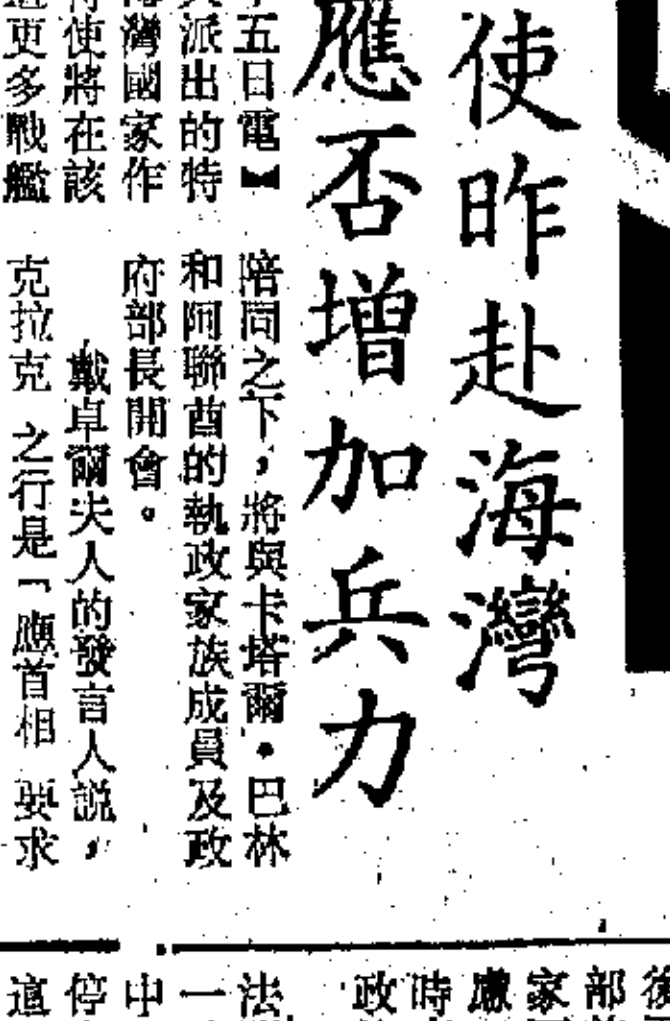 使昨赴海灣
應否增加兵力
五日電】
派出的特
灣國家作
使將在該
更多戰艦
陪同之下，將與卡塔爾·巴林
和阿聯酋的執政家族成員及政
府部長開會。
戴卓爾夫人的發言人説，
克拉克 之行是「應首相 要求
部
家
慮
時
政
法
一
中
停
這